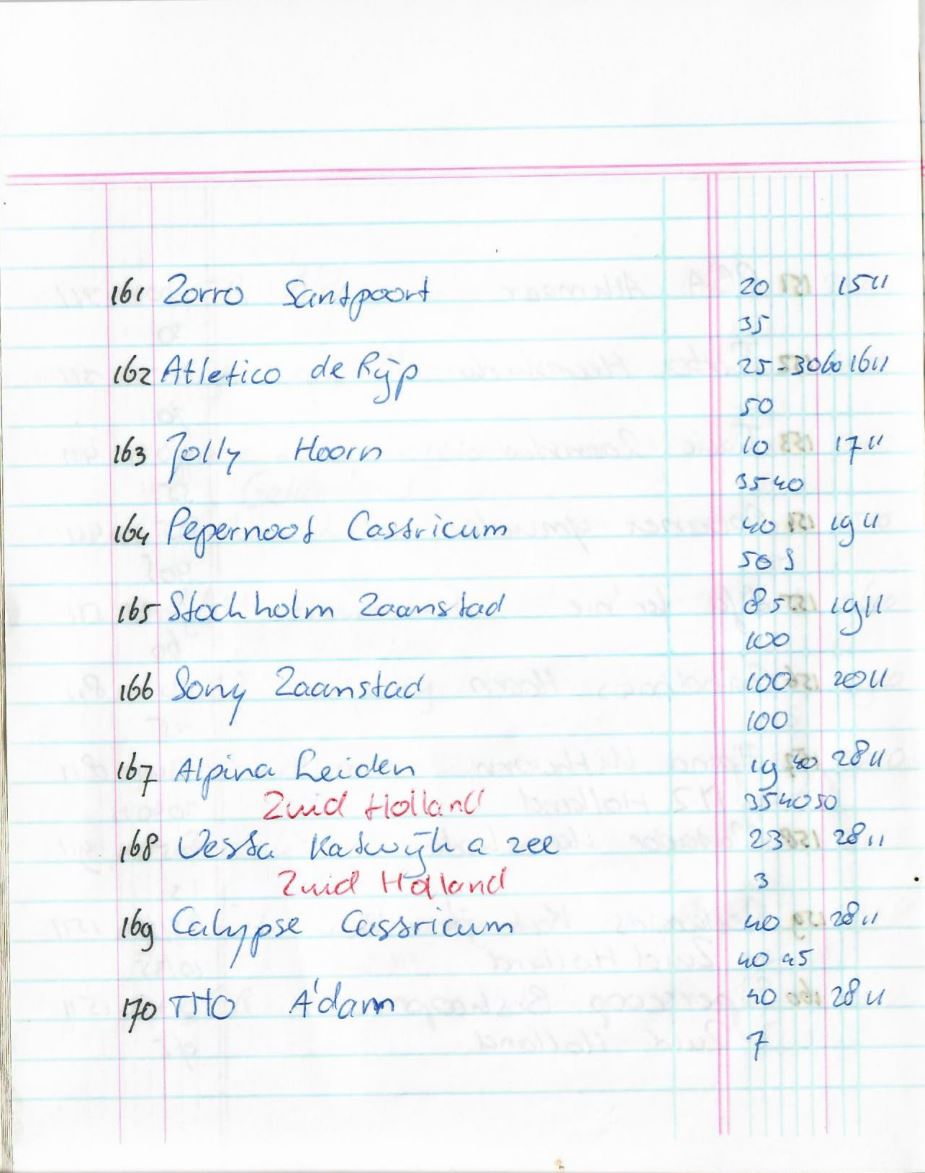 161 Zorro Santpoort 20 15 11
35
162 Atletico de Rijp 25-30 60 16 11
50
163 Jolly Hoorn 10 17 11
35 40
164 Pepernoot Castricum 40 19 11
50
165 Stockholm Zaanstad 85 19 11
100
166 Sony Zaanstad 100 20 11
100
167 Alpina Leiden 19 28 11
Zuid Holland 35 40 50
168 Vesta Katwijk a zee 23 28 11
Zuid Holland 3
169 Calypse Castricum 40 28 11
40 45
170 THO A'dam 40 28 11
7